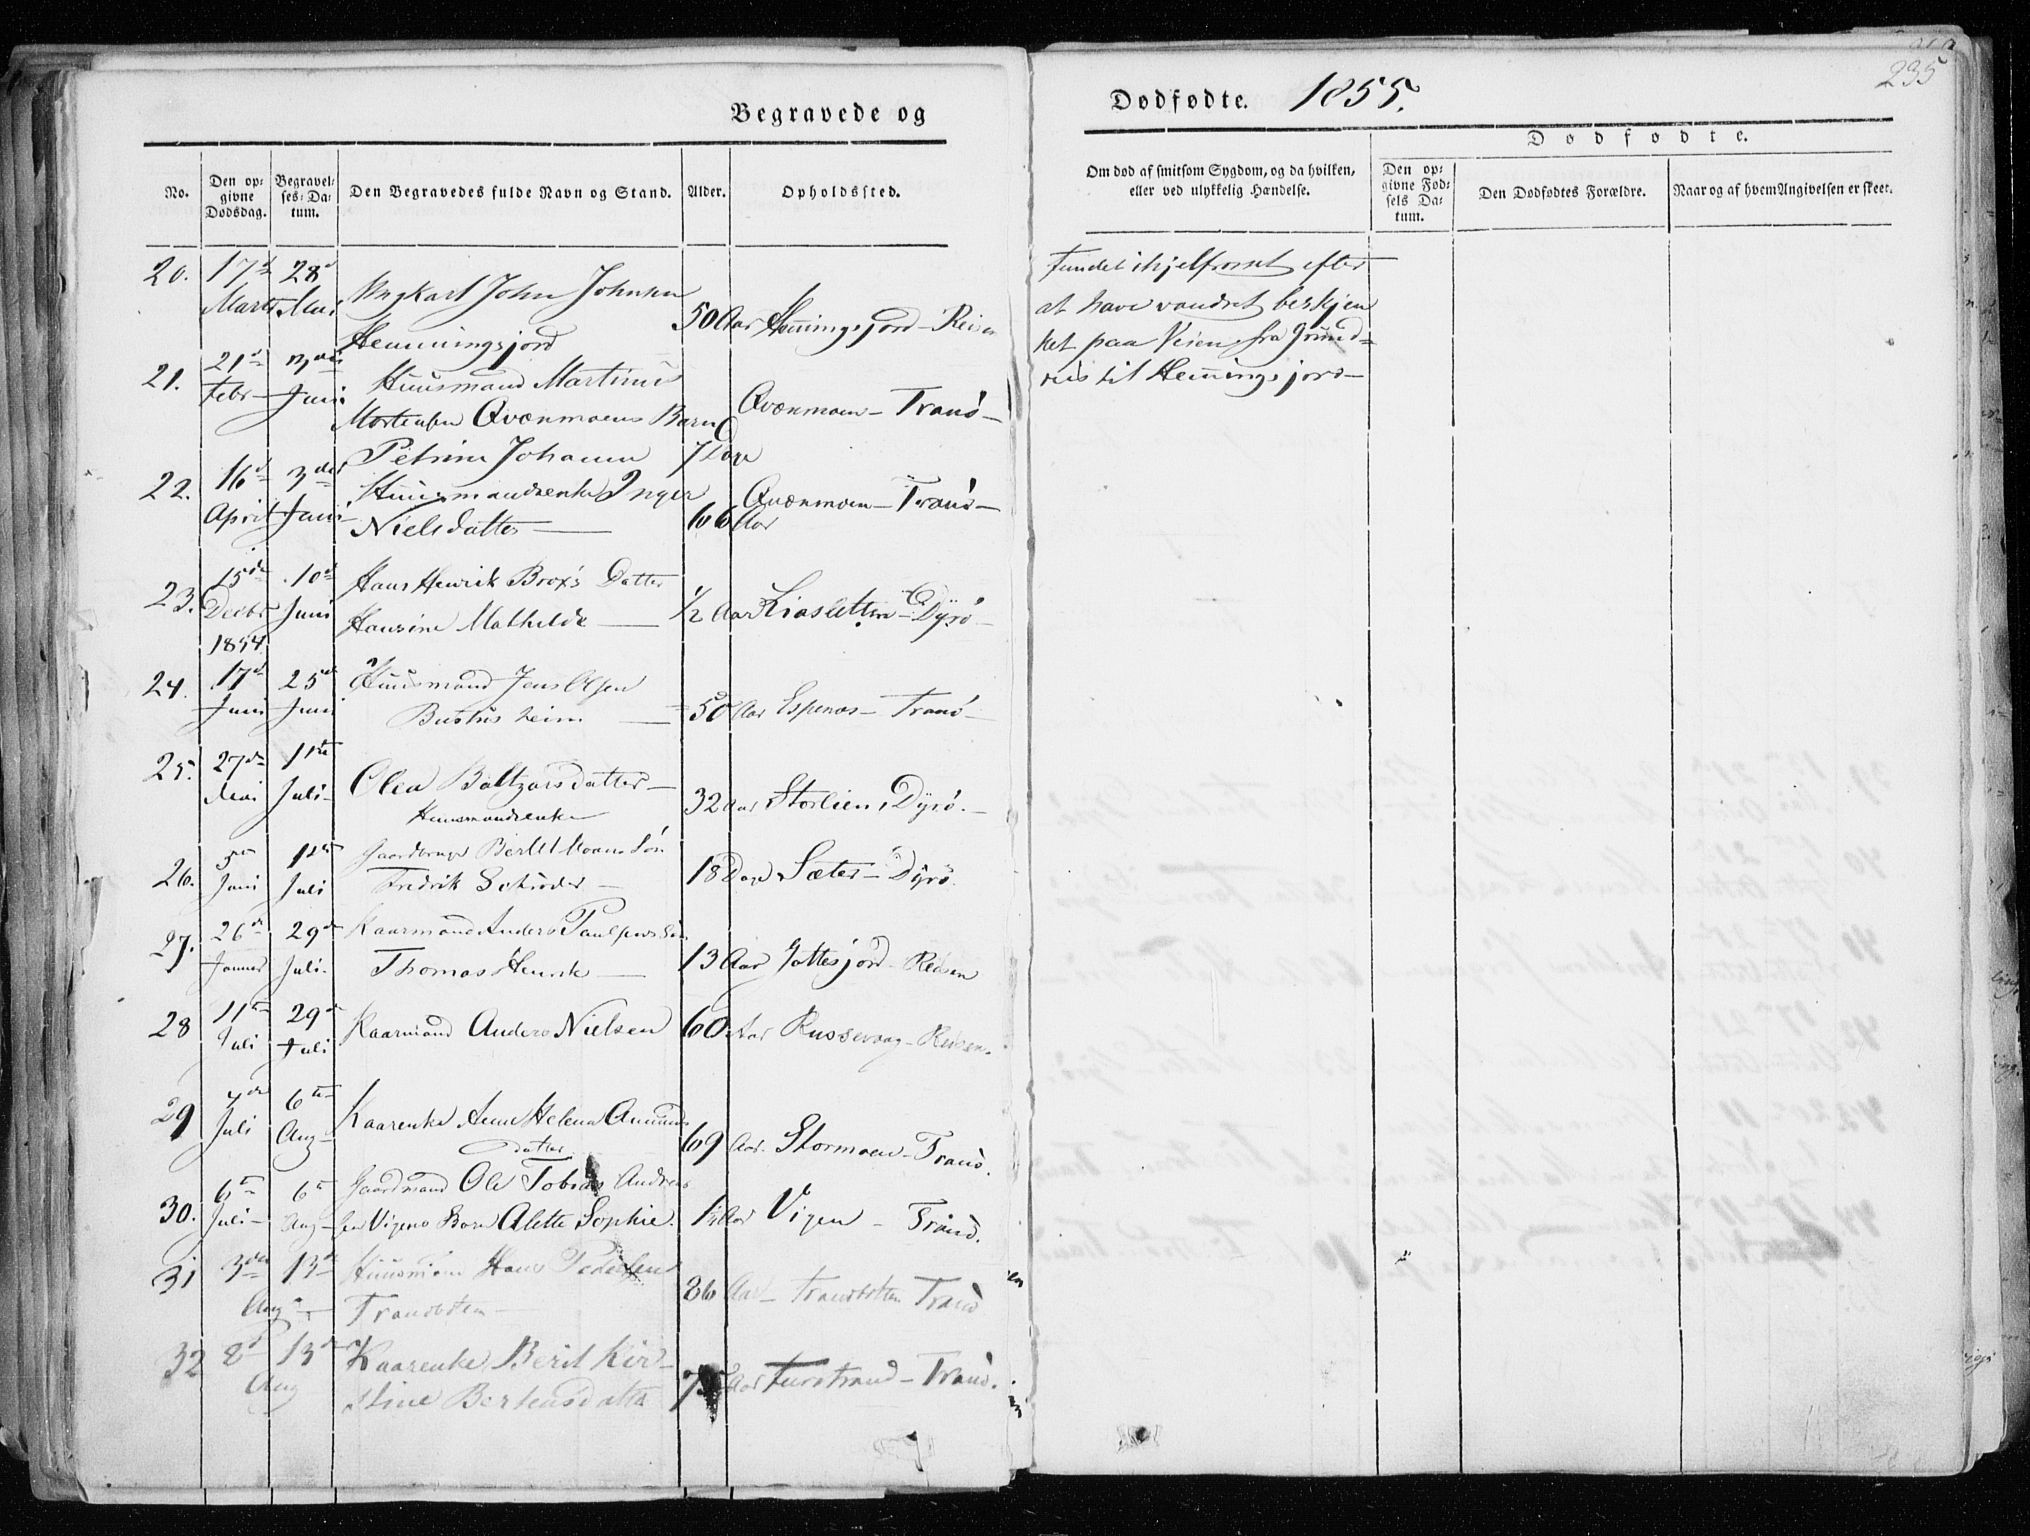 235
Begravede og
Dødfødte. 1855.
Dødfødte.
No.
Den op-
givne
Dødsdag.
Begravel-
ses-Da-
tum.
Den Begravedes fulde Navn og Stand.
Alder.
Opholdssted.
Om død af smitsom Sygdom, og da hvilken,
eller ved ulykkelig Hændelse.
Den op-
givne Fød-
sels Da-
tum.
Den Dødfødtes Forældre.
Naar og af hvem Angivelsen er skeet.
20. 17d Marts 28d Mai Ungkarl John Johnsen
Hemmingsjord 50 Aar Hemingsjord - Reisen
Fundet ihjelfrosset efter
at have vandret beskjen
ket paa Veien fra Grund-
næs til Hemingsjord
21. 21d Febr 3die Juni Huusmand Martinus
Mortensen Qvænmoens Barn
Petrine Johanna 7 Dage Qvænmoen - Tranø -
22. 16d April 3die Juni Huusmandsenke Inger
Nielsdatter 66 Aar Qvænmoen - Tranø -
23. 15de Decbr 1854 10d Juni Hans Henrik Brox's Datter
Hansine Mathilde 1/2 Aar Liasletten - Dyrø -
24. 17d Juni 25d Juni Huusmand Jens Olsen
50 Aar Espenæs - Tranø -
25. 27de Mai 1ste Juli Olea Baltzarsdatter
Huusmandsenke 32 Aar Storlien, Dyrø. -
26. 5te Juni 1ste Juli Gaardbruger Bertel Søn
Fredrik Schrøder 18 Dage Sæter - Dyrø.
27. 26de Januar 29d Juli Kaarmand Anders Paulsens Søn
Thomas Henrik 13 Aar Gottesjord - Reisen
28 11te Juli 29d Juli Kaarmand Anders Nielsen 60 Aar Russevaag - Reisen.
29 7de Juli 6te Aug Kaarenke Anne Helena Amunds
datter 69 Aar. Stormoen - Tranø.
30. 6te Juli 6te Aug Gaardmand Ole Tobias Andrea
sen Vigens Barn Alette Sophie. 1 1/2 Aar Vigen - Tranø.
31 3die Aug 13de Huusmand Hans Pedersen
Tranbotten 86 Aar Tranbotten Tranø
32 8d Aug 13d Kaarenke Berit Kir-
stine Berteusdatter 75 Aar Furstrand - Tranø.